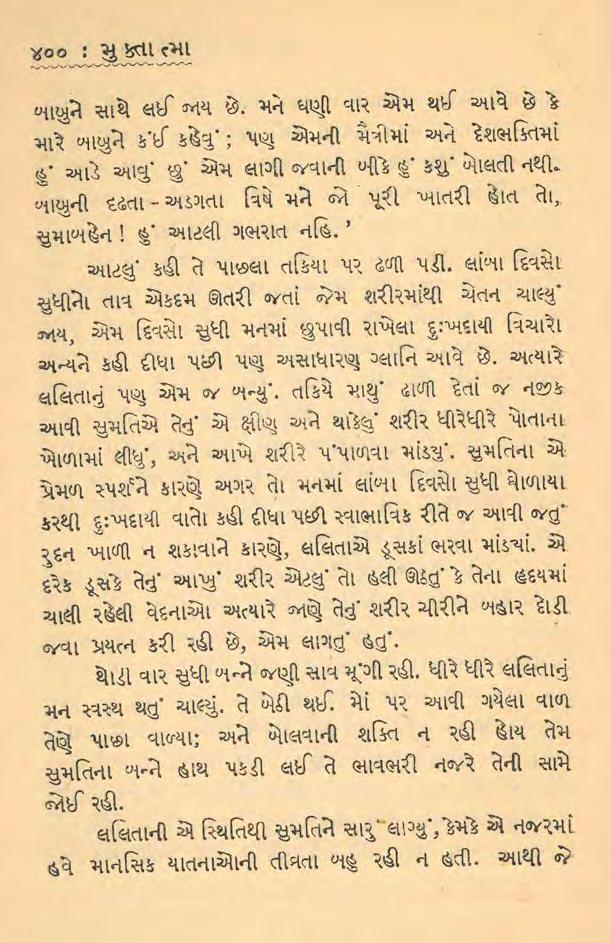 ૪૦૦ : મુક્તાત્મા
બાબુને સાથે લઈ જાય છે. મને ઘણી વાર એમ થઈ આવે છે કે
મારે બાબુને કંઈ કહેવું; પણ એમની મૈત્રીમાં અને દેશભક્તિમાં
હું આડે આવું છું એમ લાગી જવાની બીકે હું કશું બોલતી નથી.
બાબુની દૃઢતા - અડગતા વિષે મને જો પૂરી ખાતરી હોત તો,
સુમાબહેન ! હું આટલી ગભરાત નહિ. '
આટલું કહી તે પાછલા તકિયા પર ઢળી પડી. લાંબા દિવસો
સુધીનો તાવ એકદમ ઊતરી જતાં જેમ શરીરમાંથી ચેતન ચાલ્યું
જાય, એમ દિવસો સુધી મનમાં છુપાવી રાખેલા દુઃખદાયી વિચારો
અન્યને કહી દીધા પછી પણ અસાધારણ ગ્લાનિ આવે છે. અત્યારે
લલિતાનું પણ એમ જ બન્યું. તકિયે માથું ઢાળી દેતાં જ નજીક
આવી સુમતિએ તેનું એ ક્ષીણ અને થાકેલું શરીર ધીરેધીરે પોતાના
ખોળામાં લીધું, અને આખે શરીરે પંપાળવા માંડ્યું. સુમતિના એ
પ્રેમળ સ્પર્શને કારણે અગર તો મનમાં લાંબા દિવસો સુધી ઘોળાયા
કરથી દુઃખદાયી વાતો કહી દીધા પછી સ્વાભાવિક રીતે જ આવી જતું
રુદન ખાળી ન શકાવાને કારણે, લલિતાએ ડૂસકાં ભરવા માંડ્યાં. એ
દરેક ડૂસકે તેનું આખું શરીર એટલું તો હલી ઊઠતું કે તેના હૃદયમાં
ચાલી રહેલી વેદનાઓ અત્યારે જાણે તેનું શરીર ચીરીને બહાર દોડી
જવા પ્રયત્ન કરી રહી છે, એમ લાગતું હતું.
થોડી વાર સુધી બન્ને જણી સાવ મૂંગી રહી. ધીરે ધીરે લલિતાનું
મન સ્વસ્થ થતું ચાલ્યું. તે બેઠી થઈ. મોં પર આવી ગયેલા વાળ
તેણે પાછા વાળ્યા; અને બોલવાની શક્તિ ન રહી હોય તેમ
સુમતિના બન્ને હાથ પકડી લઈ તે ભાવભરી નજરે તેની સામે
જોઈ રહી.
લલિતાની એ સ્થિતિથી સુમતિને સારું લાગ્યું, કેમકે એ નજરમાં
હવે માનસિક યાતનાઓની તીવ્રતા બહુ રહી ન હતી. આથી જે